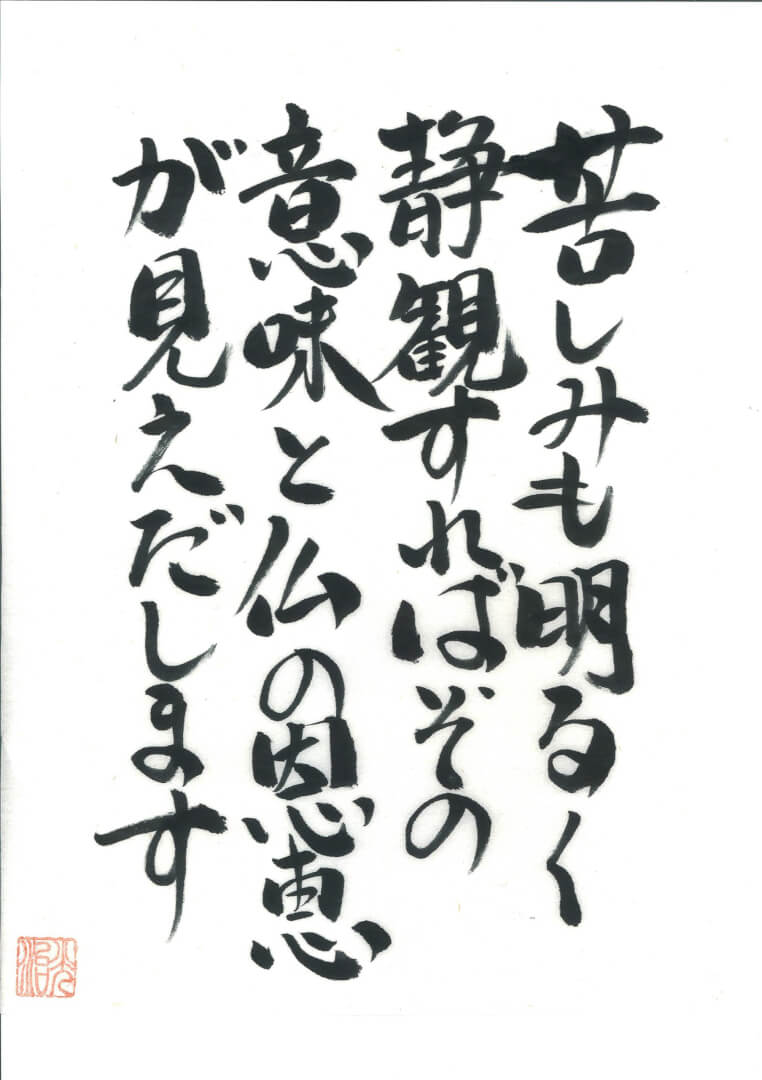 苦しみも明るく
静観すればその
意味と仏の恩恵
が見えだします